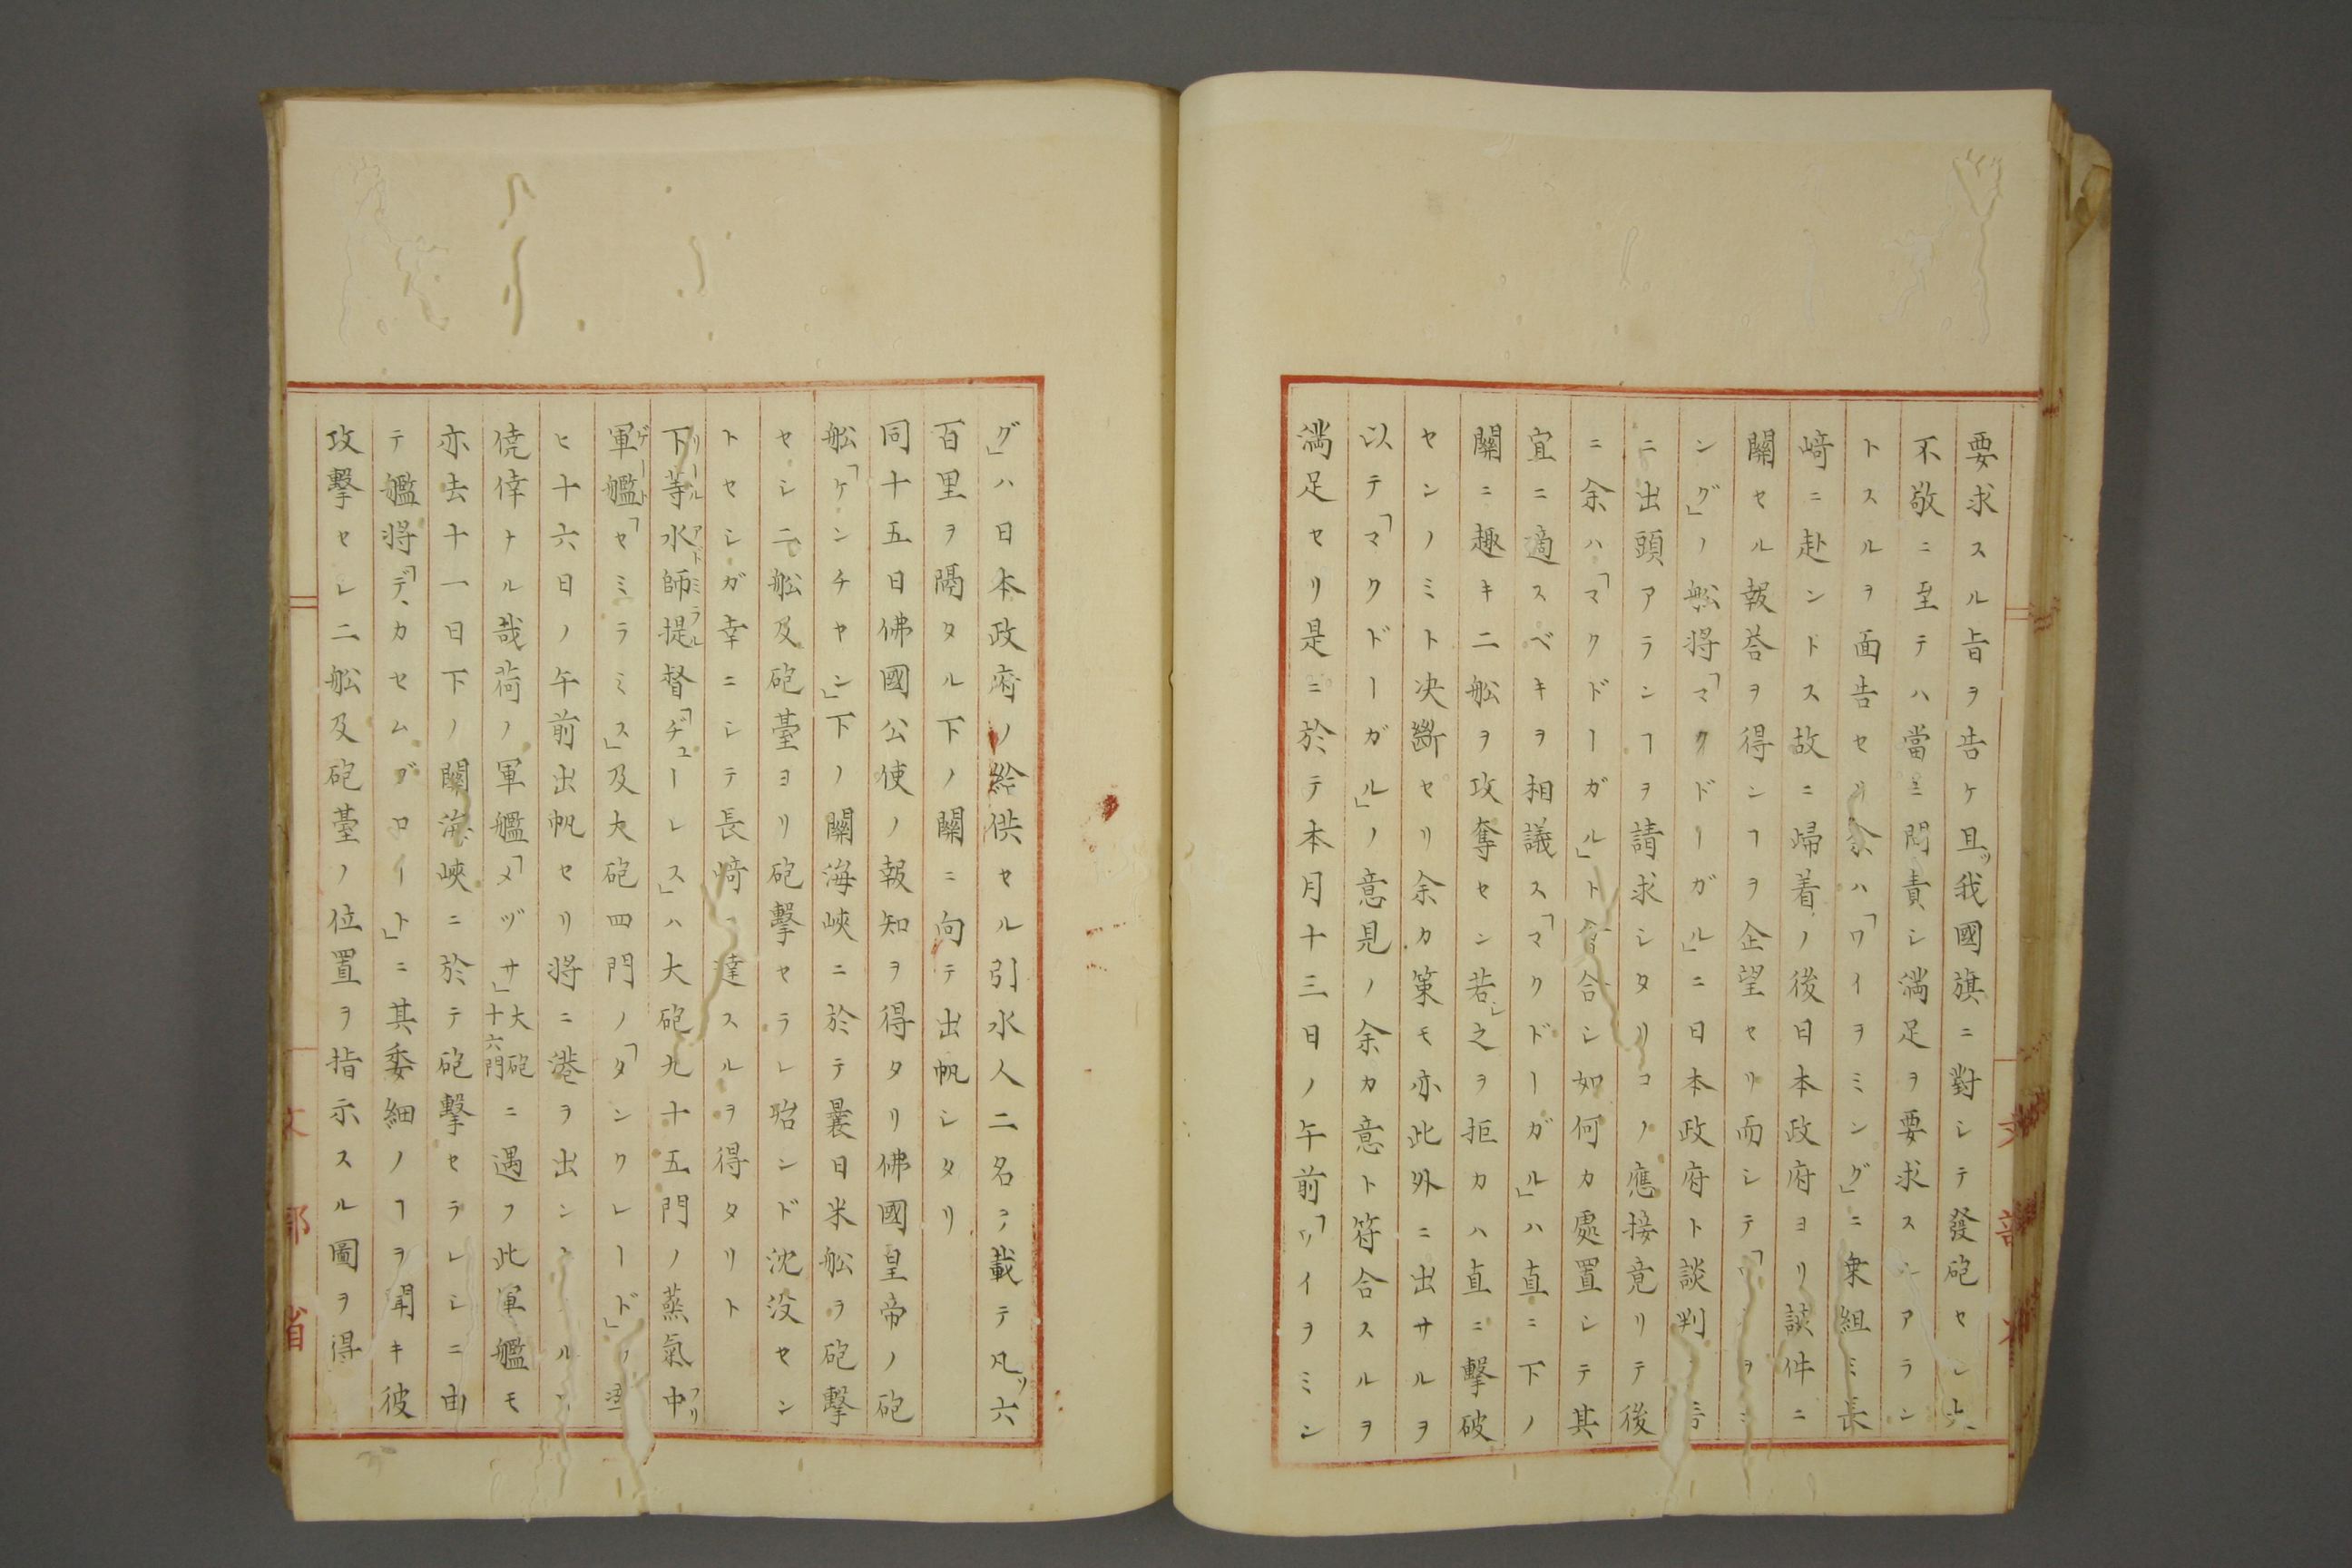 要求スル旨ヲ告ケ且ツ我國旗ニ對シテ發砲セシ
不敬ニ至テハ當ニ問責シ滿足ヲ要求スルアラン
トスルヲ面告セリ余ハ「ワイヲミング」ニ乗組ミ長
﨑ニ赴ンドス故ニ歸着ノ後日本政府ヨリ該件ニ
關セル報荅ヲ得ンヿヲ企望セリ而シテ「ワイヲミ
ング」ノ舩将「マクドーガル」ニ日本政府ト談判ノ
ニ出頭アランヿヲ請求シタリコノ應接竟リテ後
ニ余ハ「マクドーガル」ト會合シ如何カ處置シテ其
宜ニ適スベキヲ相議ス「マクドーガル」ハ直ニ下ノ
關ニ趣キ二舩ヲ攻奪セン若シ之ヲ拒カハ直ニ擊破
センノミト决斷セリ余カ策モ亦此外ニ出サルヲ
以テ「マクドーガル」ノ意見ノ余カ意ト符合スルヲ
滿足セリ是ニ於テ本月十三日ノ午前「ワイヲミン
グ」ハ日本政府ノ給供セル引水人二名ヲ載テ凡ソ六
百里ヲ隔タル下ノ關ニ向テ出帆シタリ
同十五日佛國公使ノ報知ヲ得タリ佛國皇帝ノ砲
舩「ケンチヤン」下ノ關海峽ニ於テ曩日米舩ヲ砲擊
セシ二舩及砲臺ヨリ砲擊セラレ殆ンド沈没セン
トセシガ幸ニシテ長﨑ニ達スルヲ得タリト
下等水師提督「ヂューレス」ハ大砲九十五門ノ蒸氣中
軍艦「セミラミス」及大砲四門ノ「タンクレード」ノ
ヒ十六日ノ午前出帆セリ将ニ港ヲ出ンスルニ
僥倖ナル哉荷ノ軍艦「メヅサ」大砲十六門ニ遇フ此軍艦モ
亦去十一日下ノ關海峽ニ於テ砲擊セラレシニ由
テ艦将「デ、カセムブロイト」ニ其委細ノヿヲ聞キ彼
攻擊セシ二舩及砲臺ノ位置ヲ指示スル圖ヲ得
文部省
文部省